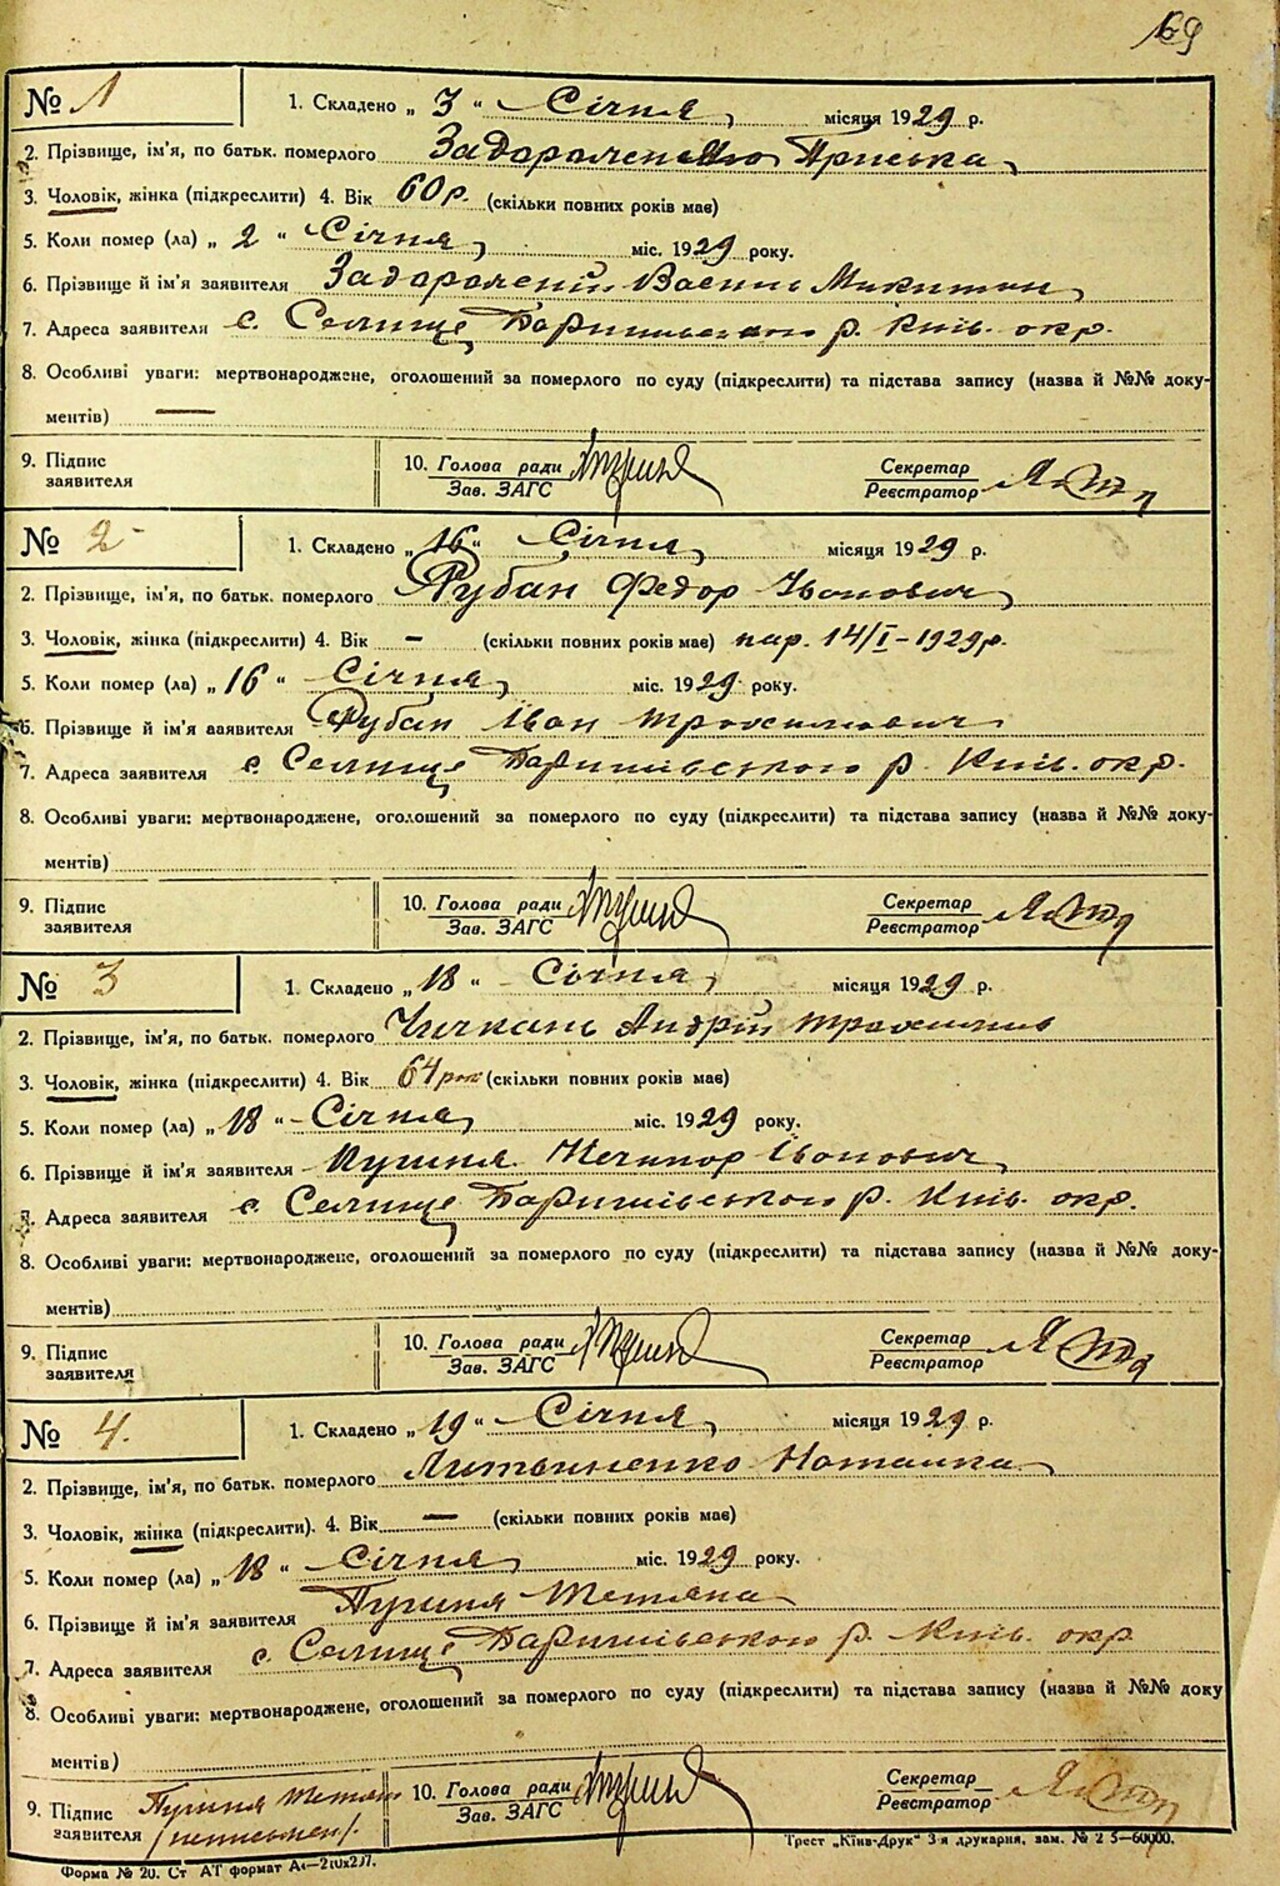 169
№ 1 1. Складено „ 3 “ Січня місяця 1929 р.
2. Прізвище, ім'я, по батьк. померлого Пріська
3. Чоловік, жінка (підкреслити) 4. Вік 60 р. (скільки повних років має)
5. Коли помер (ла) „ 2 “ Січня міс. 1929 року.
6. Прізвище й ім'я заявителя Задорожній Василь Микитин
7. Адреса заявителя с. Селище Баришівського р. Київ. окр.
8. Особливі уваги: мертвонароджене, оголошений за померлого по суду (підкреслити) та підстава запису (назва й №№ доку-
ментів) —
9. Підпис
заявителя
10. Голова ради
Зав. ЗАГС
Секретар
Реєстратор
№ 2 1. Складено „ 16 “ Січня місяця 1929 р.
2. Прізвище, ім'я, по батьк. померлого Рубан Федор Іванович
3. Чоловік, жінка (підкреслити) 4. Вік – (скільки повних років має) нар. 14/I – 1929 р.
5. Коли помер (ла) „ 16 “ Січня міс. 1929 року.
6. Прізвище й ім'я заявителя Рубан Іван Трохимович
7. Адреса заявителя с. Селище Баришівського р. Київ. окр.
8. Особливі уваги: мертвонароджене, оголошений за померлого по суду (підкреслити) та підстава запису (назва й №№ доку-
ментів)
9. Підпис
заявителя
10. Голова ради
Зав. ЗАГС
Секретар
Реєстратор
№ 3 1. Складено „ 18 “ Січня місяця 1929 р.
2. Прізвище, ім'я, по батьк. померлого Чичкань Андрій
3. Чоловік, жінка (підкреслити) 4. Вік 64 рок (скільки повних років має)
5. Коли помер (ла) „ 18 “ Січня міс. 1929 року.
6. Прізвище й ім'я заявителя Нечипор Іванович
7. Адреса заявителя с. Селище Баришівського р. Київ. окр.
8. Особливі уваги: мертвонароджене, оголошений за померлого по суду (підкреслити) та підстава запису (назва й №№ доку-
ментів)
9. Підпис
заявителя
10. Голова ради
Зав. ЗАГС
Секретар
Реєстратор
№ 4. 1. Складено „ 19 “ Січня місяця 1929 р.
2. Прізвище, ім'я, по батьк. померлого Литвиненко Наталка
3. Чоловік, жінка (підкреслити). 4. Вік — (скільки повних років має)
5. Коли помер (ла) „ 18 “ Січня міс. 1929 року.
6. Прізвище й ім'я заявителя Пугиня Тетяна
7. Адреса заявителя с. Селище Баришівського р. Київ. окр.
8. Особливі уваги: мертвонароджене, оголошений за померлого по суду (підкреслити) та підстава запису (назва й №№ доку
ментів)
9. Підпис
заявителя
Пугиня Тетян
/неписьмен/.
10. Голова ради
Зав. ЗАГС
Секретар
Реєстратор
Форма № 20. Ст АТ формат
Трест „Київ-Друк“ 3-я друкарня, зам. №